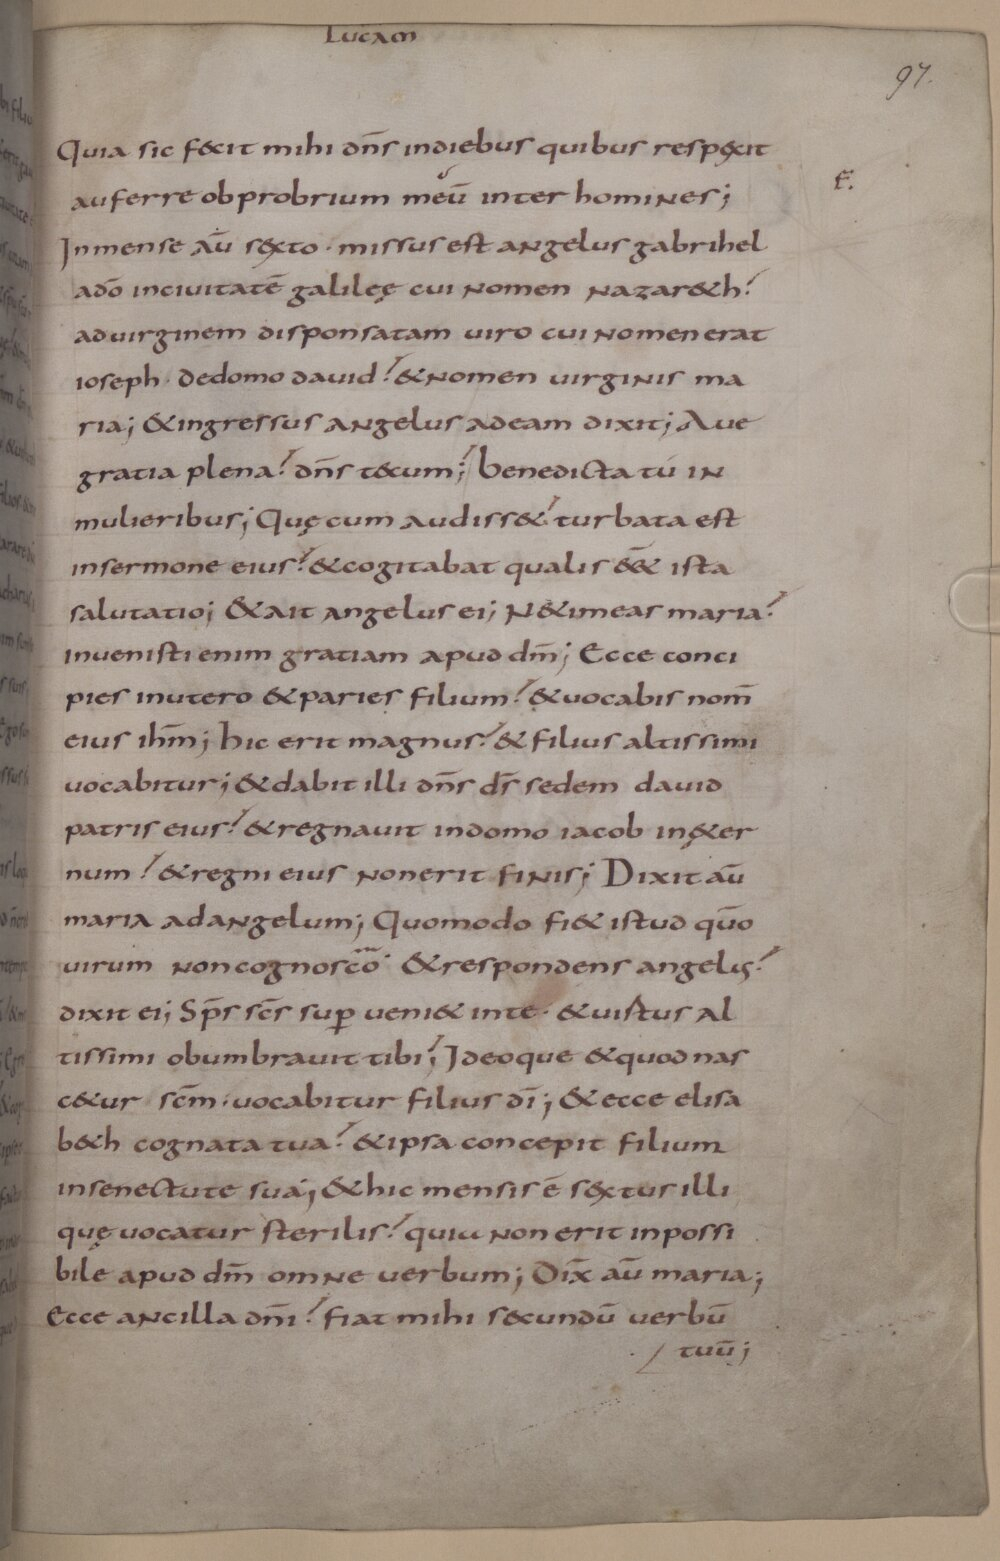 Lucam
97.
Quia sic fecit mihi dñs indiebus quibus respexit
auferre obprobrium meū inter homines;
F.
Inmense aū sexto · missus est angelus gabrihel
adō incivitatē galileę cui nomen nazar&h?
advirginem disponsatam viro cui nomen erat
ioseph · dedomo david? & nomen virginis ma
ria; & ingressus angelus adeam dixit; Ave
gratia plena? dñs tecum; benedicta tú in
mulieribus; Quę cum audiss& turbata est
insermone eius? & cogitabat qualis e͞e& ista
salutatio; & ait angelus ei; N& imeas maria?
invenisti enim gratiam apud dm̄; Ecce conci
pies inutero & paries filium? & vocabis nom̄
eius ihm̄; hic erit magnus? & filius altissimi
vocabitur; & dabit illi dñs ds̄ sedem david
patris eius? & regnavit indomo iacob in&er
num? & regni eius nonerit finis; Dixit aū
maria adangelum; Quomodo fi& istud qūo
virum non cognosco · & respondens angelus?
dixit ei; Sp̄s sc̄s sup veni& inte · & vistus al
tissimi obumbravit tibi; Ideoque & quod nas
c&ur sc̄m · vocabitur filius dī; & ecce elisa
b&h cognata tua? & ipsa concepit filium
insenectute sua; & hic mensis ē sextus illi
quę vocatur sterilis? quia non erit inpossi
bile apud dm̄ omne verbum; Dix̄ aū maria;
Ecce ancilla dn̄i? fiat mihi secundū verbū
tuū;